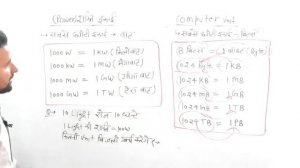 (Power) शक्ति इकाई
→ सबसे छोटी इकाई → वाट
1000W = 1KW (किलोवाट)
1000KW = 1MW (मेगावाट)
1000MW = 1GW (गीगा वाट)
1000GW = 1TW (टेरा वाट)
Light रोज घण्टे
1 Light की शक्ति = 100W
कितनी Unit बिजली खर्च करेंगे
Computer Unit
→ सबसे छोटी इकाई - बिट
8 बिट = 1 बाइट (Byte)
1024 Byte = 1KB
1024 KB = 1MB
1024 MB = 1GB
1024 GB = 1TB
1024 TB = 1PB